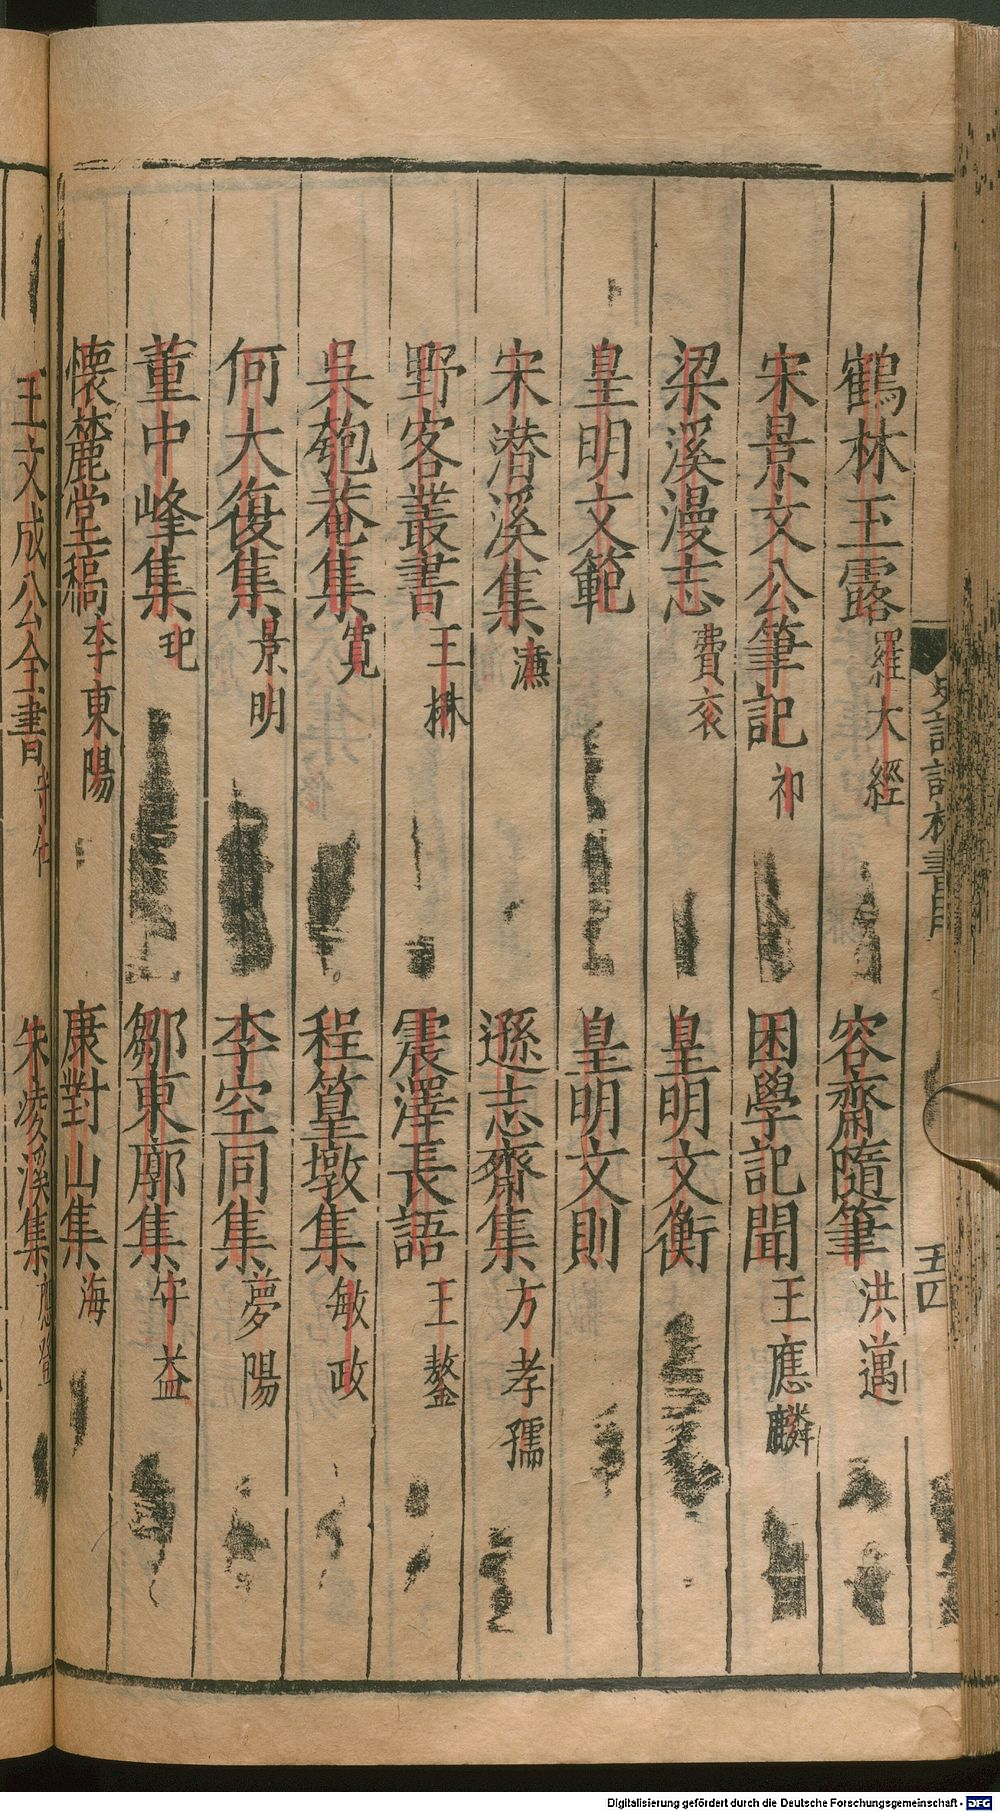 鶴林玉露 羅大經 容齋隨筆 洪邁
宋景文公筆記 祁 困學記聞 王應麟
梁溪漫志 費袞 皇明文衡
皇明文範 皇明文則
宋潜溪集 濂 遜志齋集 方孝孺
野客叢書 王楙 震澤長語 王鏊
吳匏菴集 寬 程篁墩集 敏政
何大復集 景明 李空同集 夢陽
董中峰集 玘 鄒東廓集 守益
懷麓堂稿 李東陽 康對山集 海
王文成公全書 守仁 朱凌溪集 應登
Digitalisierung gefördert durch die Deutsche Forschungsgemeinschaft - DFG